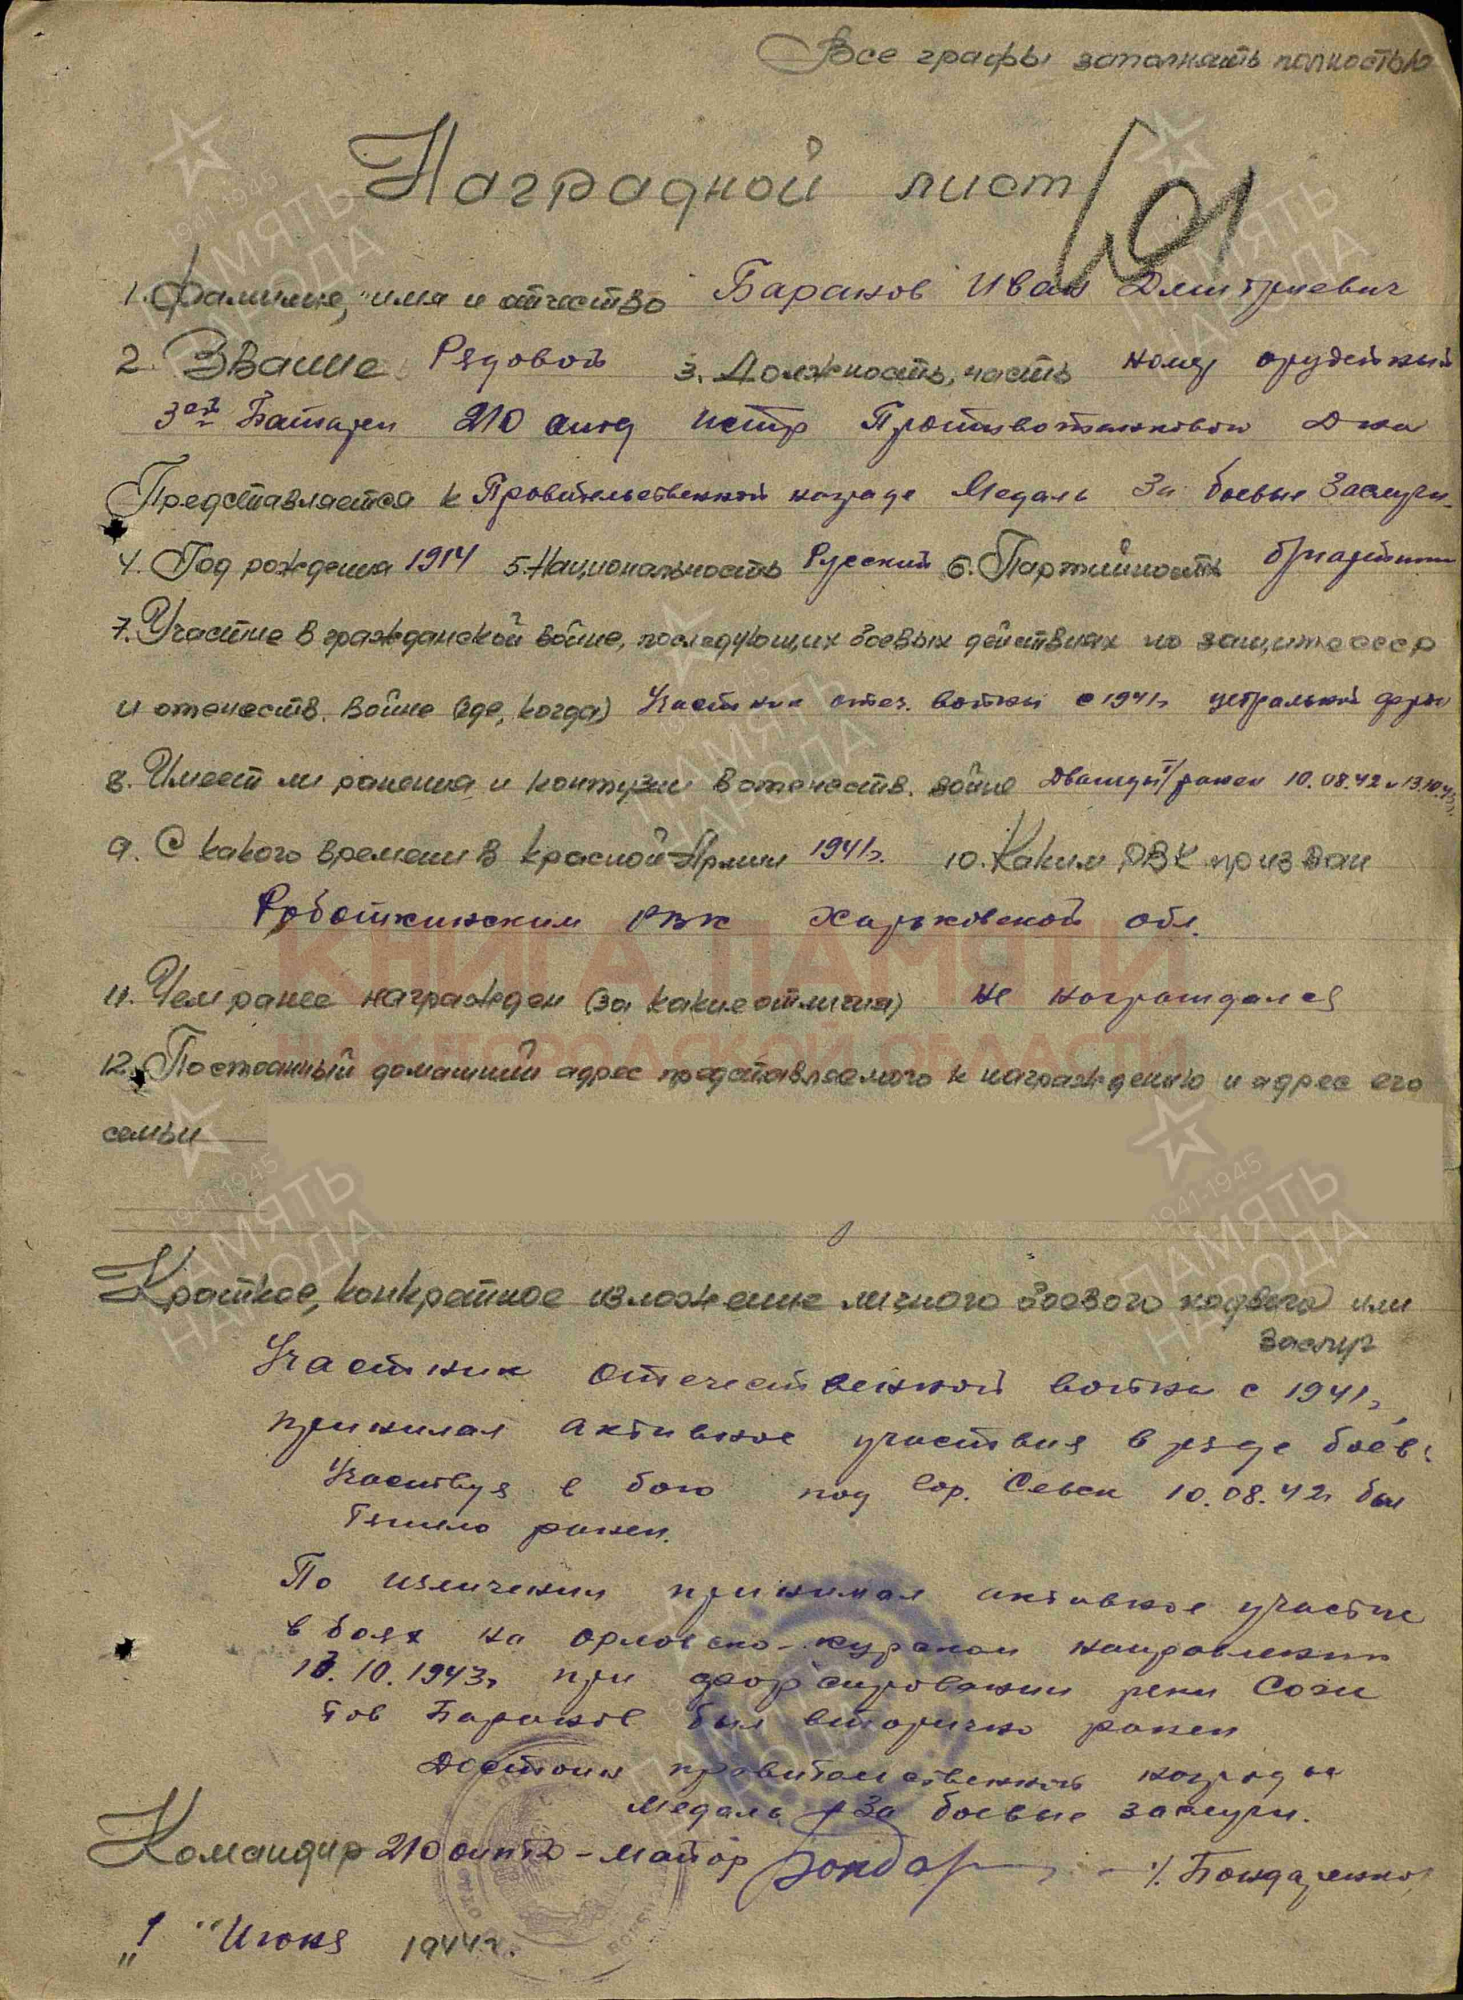 Все графы заполнять полностью
Наградной лист
1. Фамилие, имя и отчество Баранов Иван Дмитриевич
2. Звание Рядовой 3. Должность, часть номер орудейный
3ей Батареи 210 истр Противотанковой Див
Представляется к Правительственной награде Медаль За боевые Заслуги
4. Год рождения 1914 5. Национальность Русский 6. Партийность
7. Участие в гражданской войне, последующих боевых действиях по защите СССР
и отечеств. войне (где, когда) Участник отеч. войны с 1941г центральной фрон
8. Имеет ли ранения и контузии в отечеств. войне Дважды ранен 10.08.42 и 13.10.43
9. С какого времени в Красной Армии 1941г. 10. Каким РВК призван
РВК Харьковской обл.
11. Чем ранее награжден (за какие отличия) не награждался
12. Постоянный домашний адрес представляемого к награждению и адрес его
семьи
Краткое, конкретное изложение личного боевого подвига или
заслуг
Участник отечественной войны с 1941г,
принимал активное участия в ряде боёв:
Участвуя в бою под гор. Севск 10.08.42г был
тяжело ранен.
По изличении принимал активное участие
в боях на орловско-курском направлении
13.10.1943г при форсировании реки Сожи
тов Баранов был вторично ранен
Достоин правительственной награды
Медаль "За боевые заслуги.
Командир 210 оиптд - майор /Бондаренко/
"1" Июня 1944г.
КНИГА ПАМЯТИ
НИЖЕГОРОДСКОЙ ОБЛАСТИ
1941-1945
ПАМЯТЬ
НАРОДА